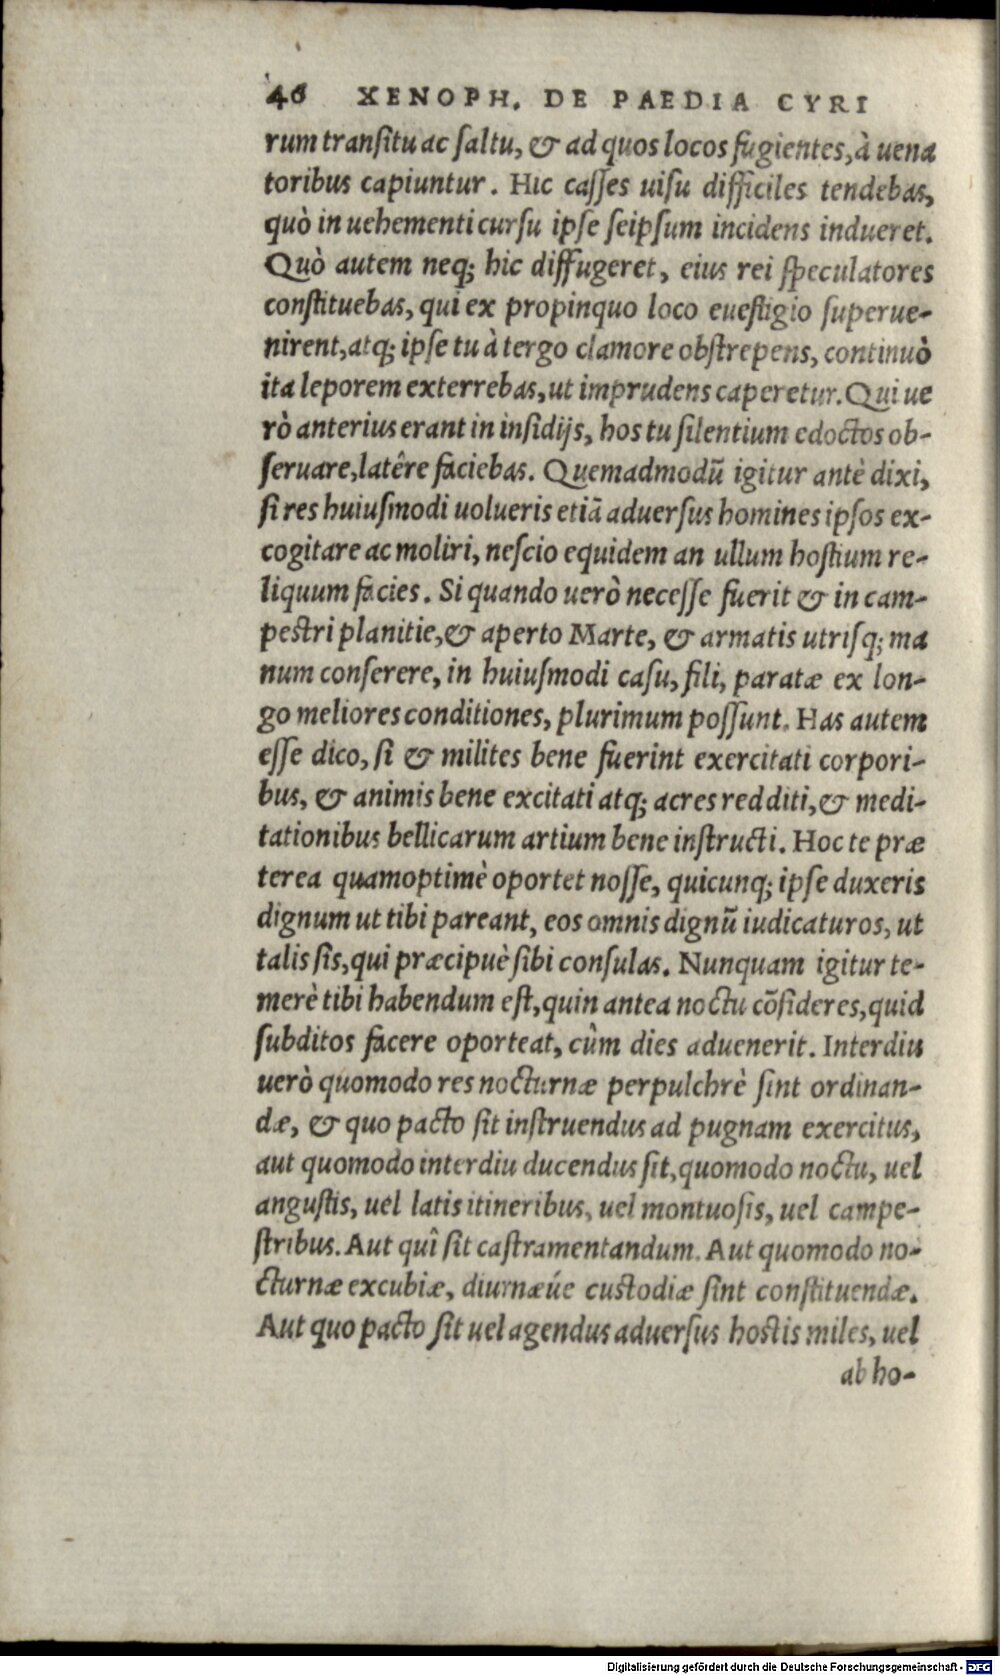 46 XENOPH. DE PAEDIA CYRI
rum transitu ac saltu, & ad quos locos fugientes, à uena
toribus capiuntur. Hic casses uisu difficiles tendebas,
quò in uehementi cursu ipse seipsum incidens indueret.
Quò autem neq; hic diffugeret, eius rei speculatores
constituebas, qui ex propinquo loco euestigio superue-
nirent, atq; ipse tu à tergo clamore obstrepens, continuò
ita leporem exterrebas, ut imprudens caperetur. Qui ue
rò anterius erant in insidijs, hos tu silentium edoctos ob-
seruare, latêre faciebas. Quemadmodũ igitur antè dixi,
si res huiusmodi uolueris etiã aduersus homines ipsos ex-
cogitare ac moliri, nescio equidem an ullum hostium re-
liquum facies. Si quando uerò necesse fuerit & in cam-
pestri planitie, & aperto Marte, & armatis utrisq; ma
num conserere, in huiusmodi casu, fili, paratæ ex lon-
go meliores conditiones, plurimum possunt. Has autem
esse dico, si & milites bene fuerint exercitati corpori-
bus, & animis bene excitati atq; acres redditi, & medi-
tationibus bellicarum artium bene instructi. Hoc te præ
terea quamoptimè oportet nosse, quicunq; ipse duxeris
dignum ut tibi pareant, eos omnis dignũ iudicaturos, ut
talis sis, qui præcipuè sibi consulas. Nunquam igitur te-
merè tibi habendum est, quin antea noctu cõsideres, quid
subditos facere oporteat, cûm dies aduenerit. Interdiu
uerò quomodo res nocturnæ perpulchrè sint ordinan-
dæ, & quo pacto sit instruendus ad pugnam exercitus,
aut quomodo interdiu ducendus sit, quomodo noctu, uel
angustis, uel latis itineribus, uel montuosis, uel campe-
stribus. Aut quî sit castramentandum. Aut quomodo no-
cturnæ excubiæ, diurnæúe custodiæ sint constituendæ.
Aut quo pacto sit uel agendus aduersus hostis miles, uel
ab ho-
Digitalisierung gefördert durch die Deutsche Forschungsgemeinschaft - DFG